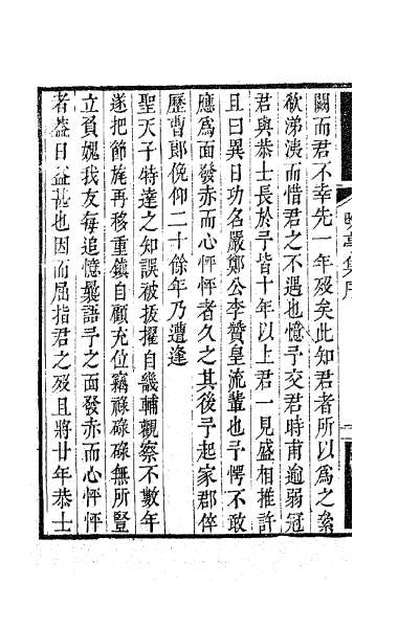 晚亭集序
闢而君不幸先一年歿矣此知君者所以為之㕘
欷涕洟而惜君之不遇也憶予交君時甫逾弱冠
君與恭士長於予皆十年以上君一見盛相推許
且曰異日功名嚴鄭公李贊皇流輩也予愕不敢
應為面發赤而心怦怦者久之其後予起家郡倅
歷曹郎俛仰二十餘年乃遭逢
聖天子特達之知誤被拔擢自畿輔觀察不數年
遂把節旄再移重鎮自顧充位竊祿碌碌無所豎
立負媿我友每追憶曩語予之面發赤而心怦怦
者葢日益甚也因而屈指君之歿且將廿年恭士